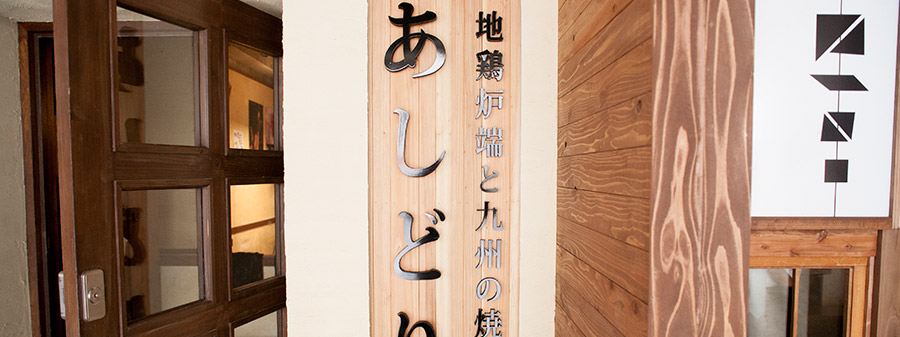 地鶏炉端と九州の焼
あしど